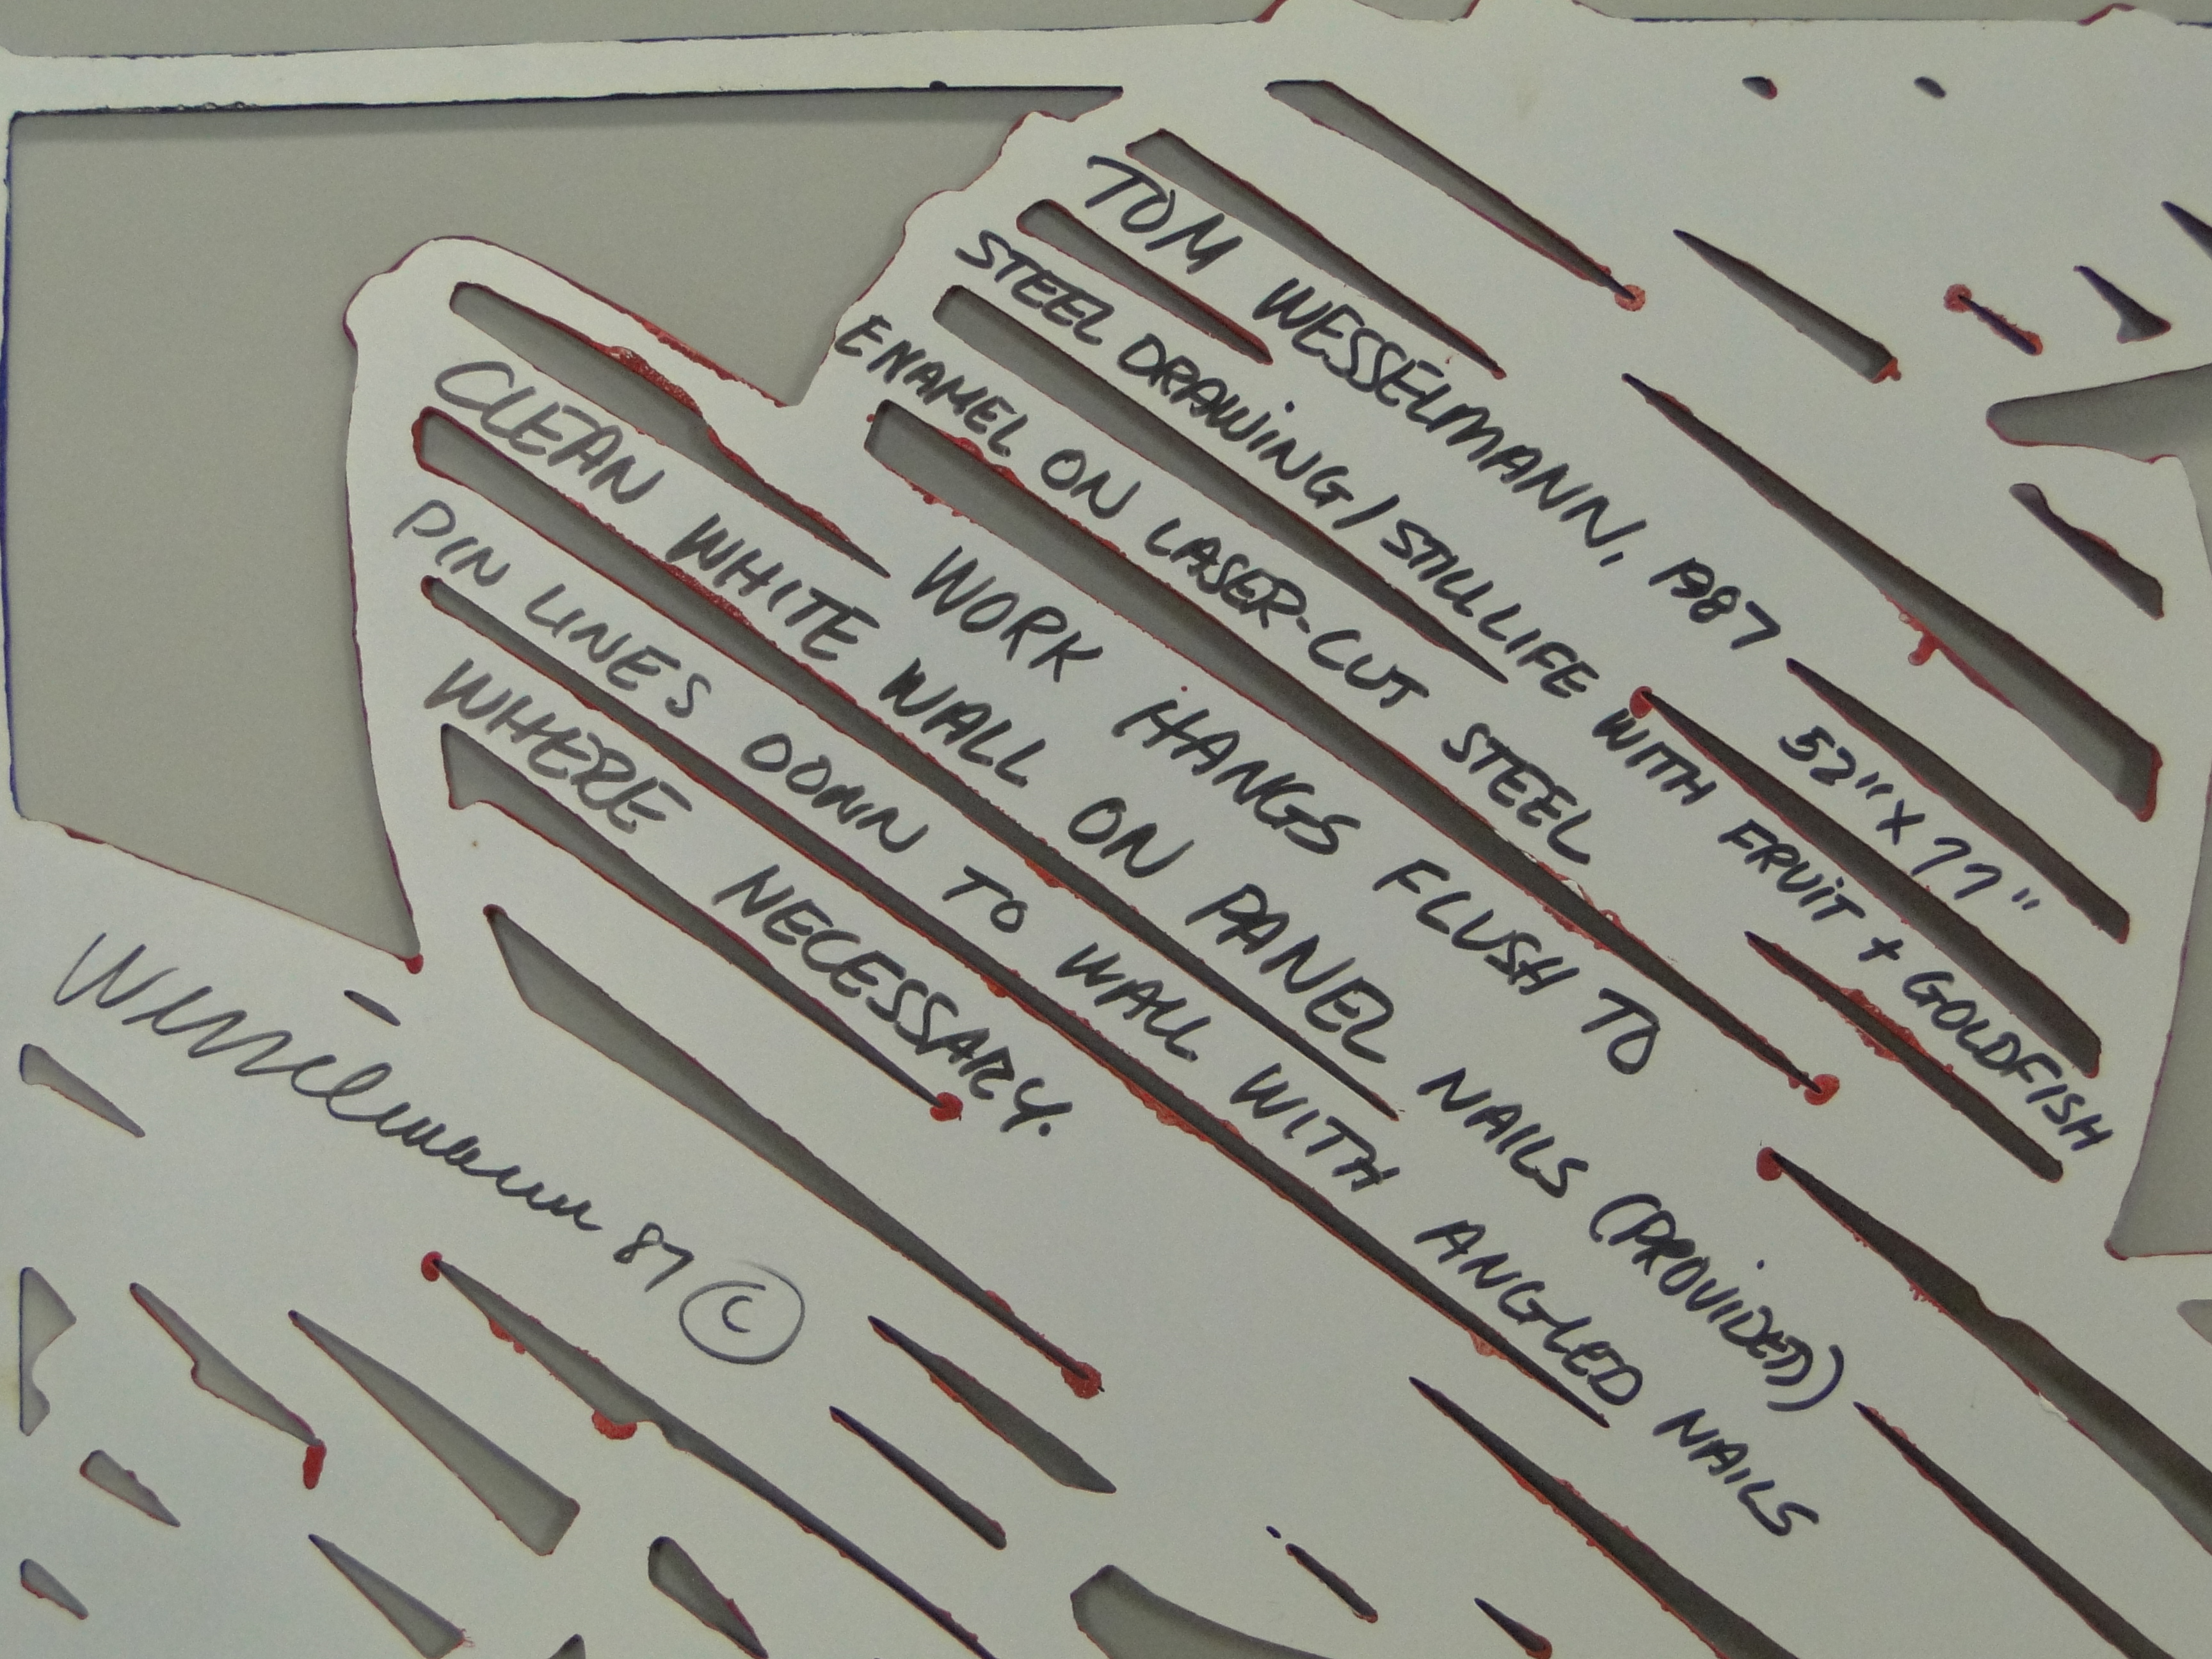 TOM WESSELMANN, 1987
STEEL DRAWING / STILL LIFE WITH FRUIT + GOLDFISH
ENAMEL ON LASER-CUT STEEL 52" X 77"
WORK HANGS FLUSH TO
CLEAN WHITE WALL ON PANEL NAILS (PROVIDED)
PIN LINES DOWN TO WALL WITH ANGLED NAILS
WHERE NECESSARY.
Wesselmann 87 ©